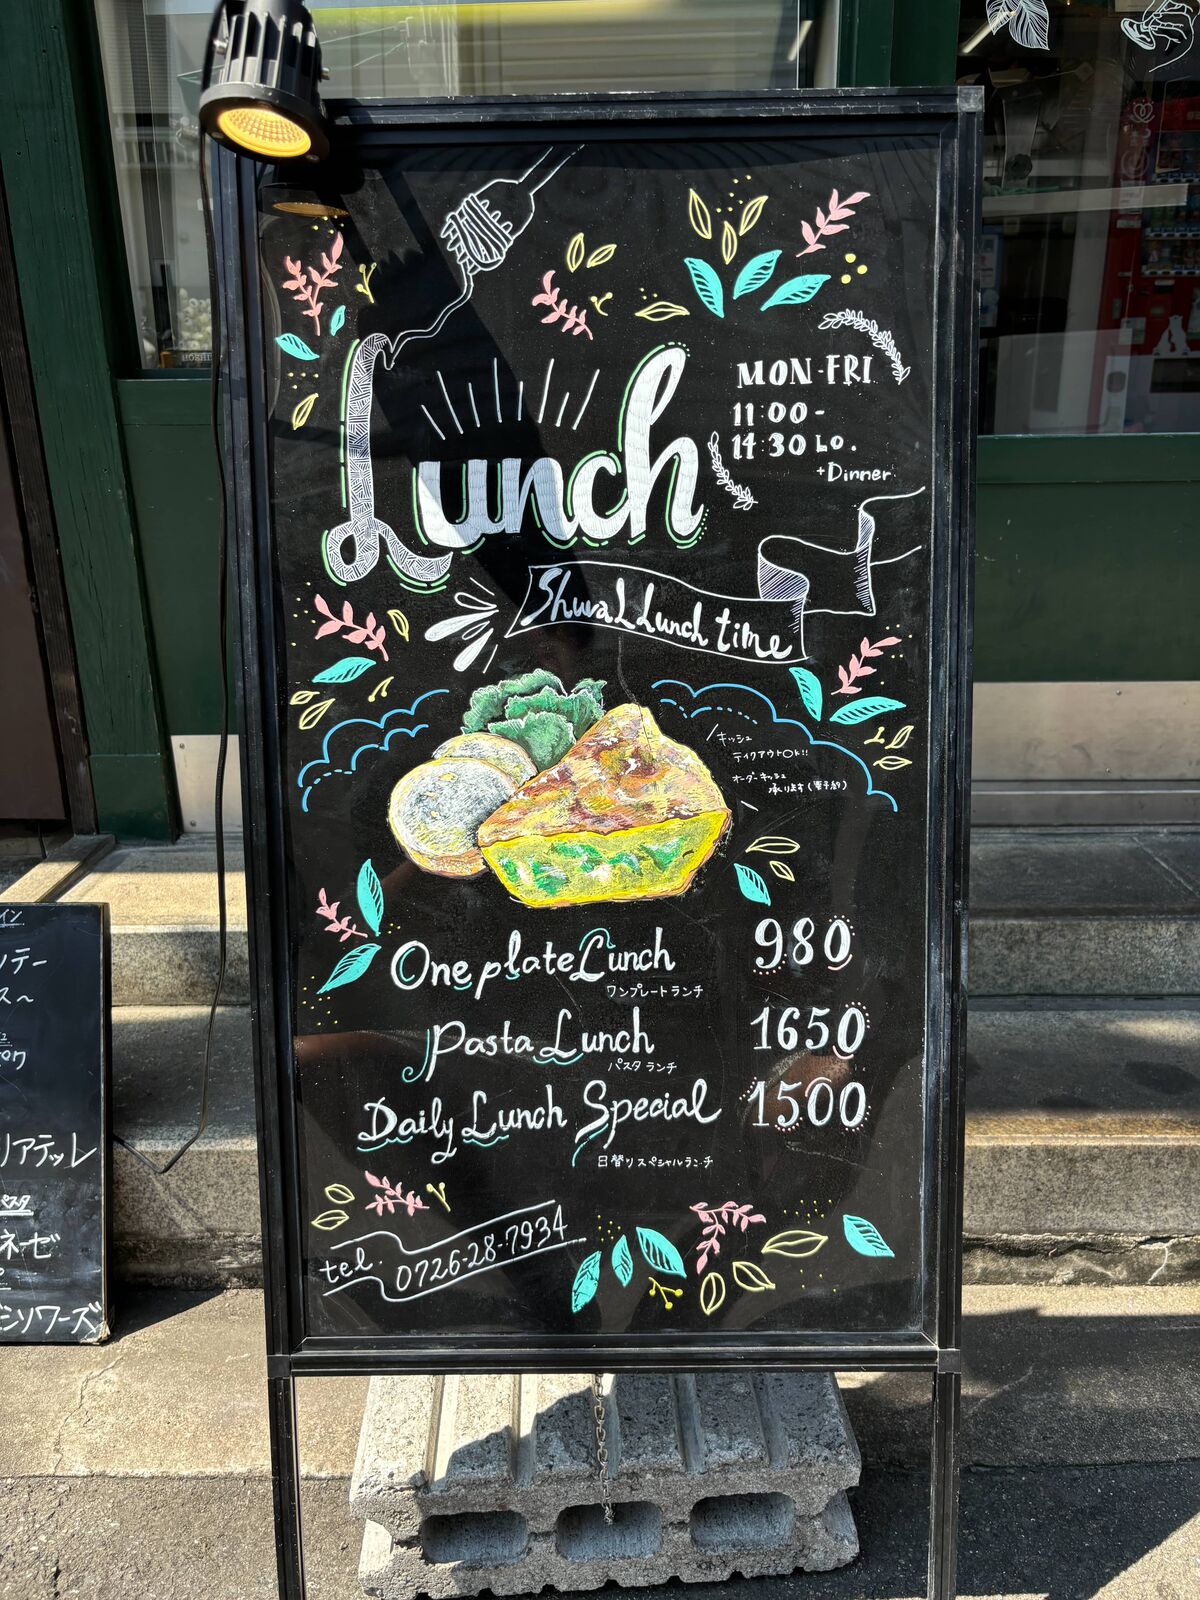 Lunch
MON-FRI
11:00-
14:30 Lo.
+Dinner
ShuvaL Lunch time
キッシュ
テイクアウトOk!!
オーダーキッシュ
承ります(要予約)
One plate Lunch 980
ワンプレートランチ
Pasta Lunch 1650
パスタランチ
Daily Lunch Special 1500
日替りスペシャルランチ
tel. 0726-28-7934
イン
ノテー
ス〜
リアテッレ
パスタ
ネーゼ
ソワーズ